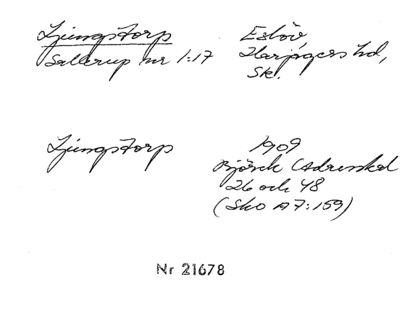 Ljungstorp Eslöv,
Sallerup nr 1:17 Harjagers hd,
Sk.
Ljungstorp 1909
Björck (Adresskal
26 och 48
(Sko A7:159)
Nr 21678